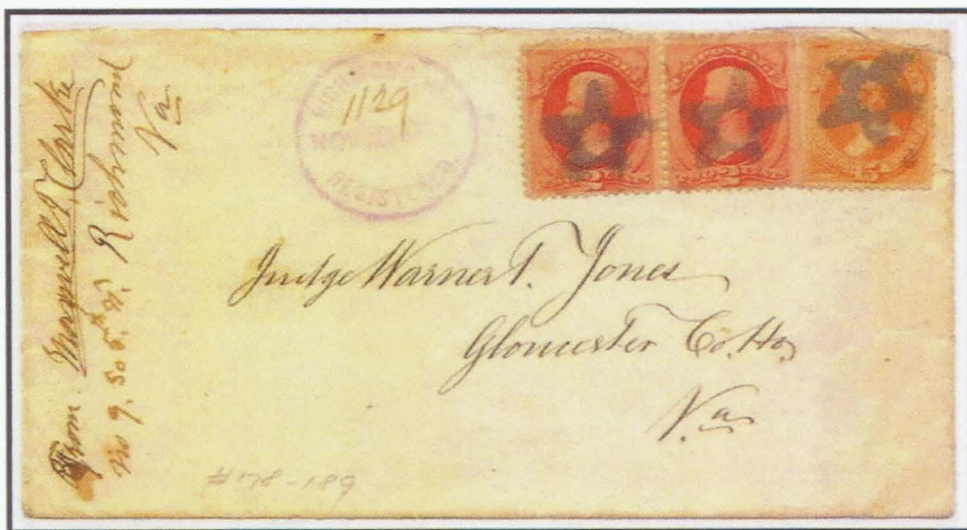 From. Maxwell T. Clarke
No 9 So 6th St Richmond
Va
1129
NOV
REGISTERED
2 2 15
Judge Warner T. Jones
Gloucester Co. Ho,
Va
#178-189